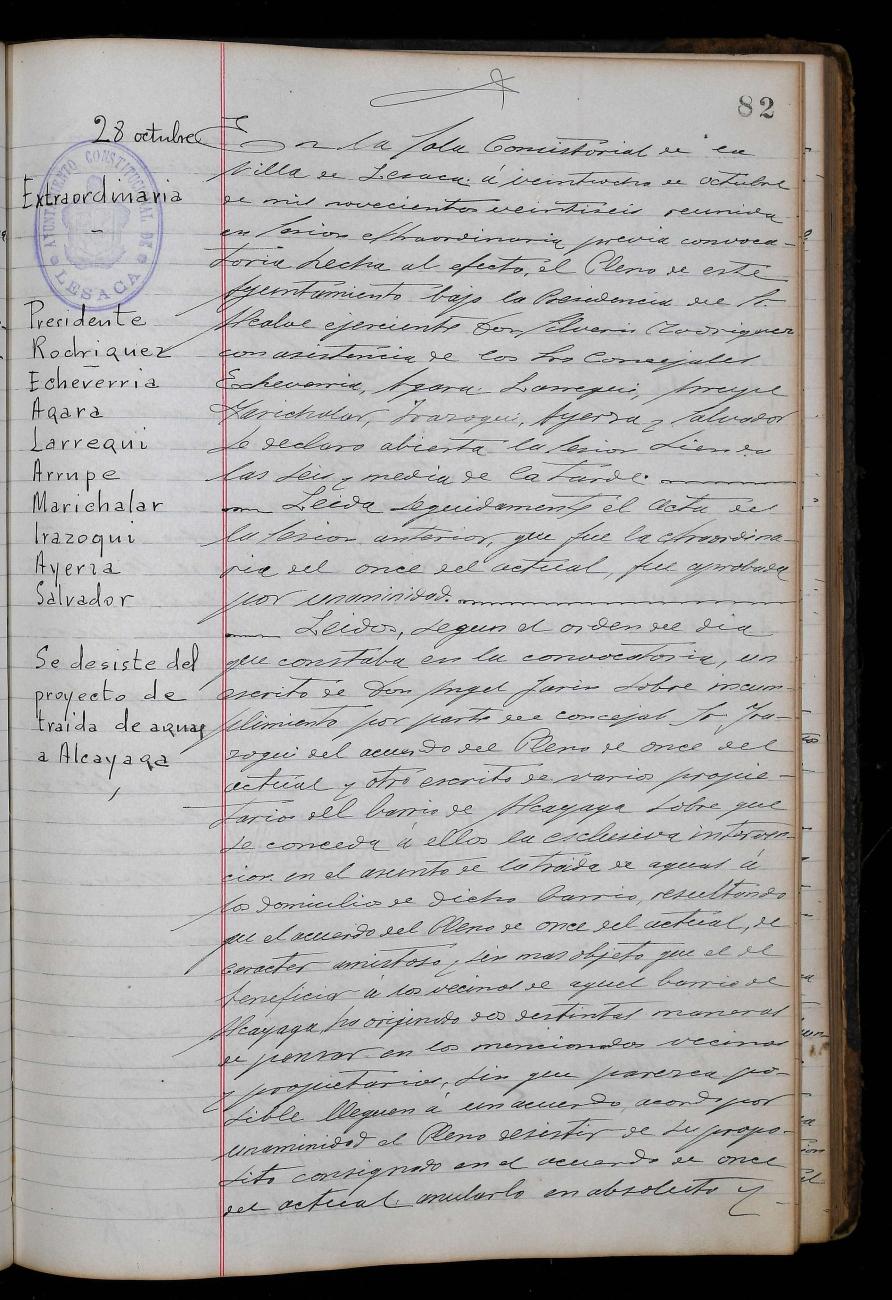 82
28 octubre
Extraordinaria
AYUNTAMIENTO CONSTITUCIONAL DE
LESACA
Presidente
Rodriguez
Echeverria
Agara
Larregui
Arrupe
Marichalar
Irazoqui
Ayerza
Salvador
Se desiste del
proyecto de
traida de aguas
a Alcayaga
En la Sala Consistorial de la
Villa de Lesaca á veintiocho de octubre
de mil novecientos veintiseis reunida
en sesion extraordinaria previa convoca-
toria hecha al efecto, el Pleno de este
Ayuntamiento bajo la Presidencia del Sr.
Alcalde ejerciente Don Silverio Rodriguez
con asistencia de los Srs Concejales
Echeverria, Agara, Larregui, Arrupe
Marichalar, Irazoqui, Ayerza y Salvador
se declaro abierta la sesion siendo
las seis y media de la tarde.
Leida seguidamente el acta de
la sesion anterior, que fue la extraordina-
ria del once del actual, fue aprobada
por unaminidad.
Leidos, segun el orden del dia
que constaba en la convocatoria, un
escrito de Don Angel Jarin sobre incum-
plimiento por parte del concejal Sr. Ira-
zoqui del acuerdo del Pleno de once del
actual y otro escrito de varios propie-
tarios dell barrio de Alcayaga sobre que
se conceda á ellos la esclusiva interven-
cion en el asunto de la traida de aguas á
los domicilio de dicho barrio, resultando
que el acuerdo del Pleno de once del actual, de
caracter amistoso y sin mas objeto que el de
beneficiar á los vecinos de aquel barrio de
Alcayaga, ha originado dos destintas maneras
de pensar en los mencionados vecinos
y propietarios, sin que parezca po-
sible lleguen á un acuerdo, acordo por
unaminidad el Pleno desistir de su propo-
sito consignado en el acuerdo de once
del actual, anularlo en absoluto y